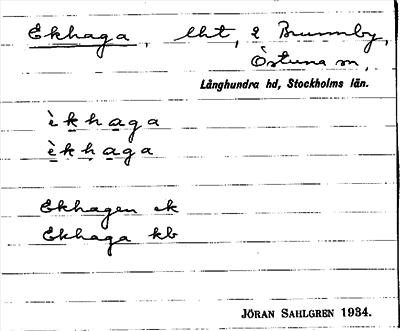 Ekhaga, lht, 2 Brunnby,
Östuna sn,
Långhundra hd, Stockholms län.
èk̲h a̲g a
è̲k̲h̲ a̲g a
Ekhagen ek
Ekhaga kb
JÖRAN SAHLGREN 1934.